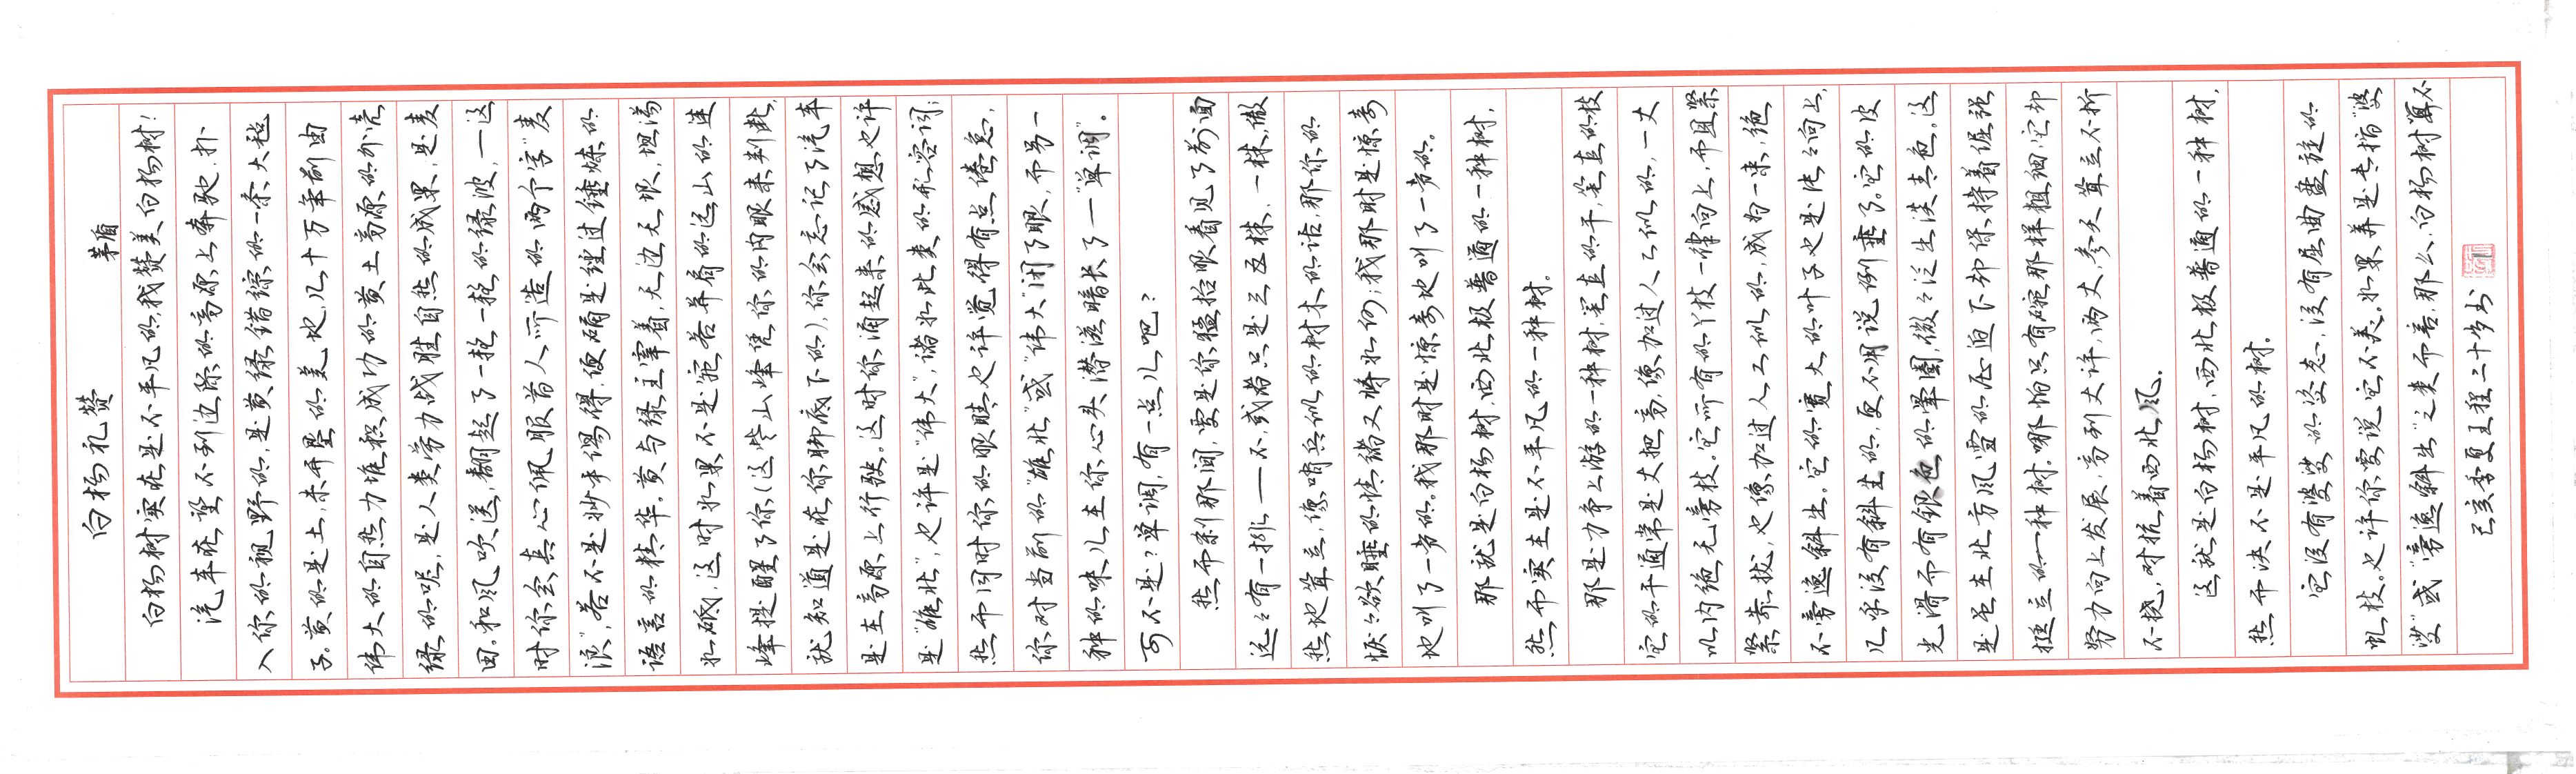 白杨礼赞 茅盾
白杨树实在是不平凡的,我赞美白杨树!
汽车在望不到边际的高原上奔驰,扑
入你的视野的,是黄绿错综的一条大毡
子。黄的是土,未开垦的荒地,几十万年前由
伟大的自然力堆积成功的黄土高原的外壳
绿的呢,是人类劳力战胜自然的成果,是麦
田。和风吹送,翻起了一轮一轮的绿波,一这
时你会真心佩服昔人所造的两个字"麦
浪",若不是妙手偶得,便确是经过锤炼的
语言的精华。黄与绿主宰着,无边无垠,坦荡
如砥,这时如果不是宛若并肩的远山的连
峰提醒了你(这些山峰凭你的肉眼来判断,
就知道是在你脚底下的),你会忘记了汽车
是在高原上行驶。这时你涌起来的感想也许
是"雄壮",也许是"伟大",诸如此类的形容词;
然而同时你的眼睛也许觉得有点倦怠,
你对当前的"雄壮"或"伟大"闭了眼,而另一
种的味儿在你心头潜滋暗长了一"单调"。
可不是?单调,有一点儿吧?
然而刹那间,要是你猛抬眼看见了前面
远々有一排——不,或者只是三五株,一株,傲
然地耸立,像哨兵似的树木的话,那你的
恹々欲睡的情绪又将如何;我那时是惊奇
地叫了一声的。我那时是惊奇地叫了一声的。
那就是白杨树,西北极普通的一种树,
然而实在是不平凡的一种树。
那是力争上游的一种树,笔直的干,笔直的枝
它的干通常是丈把高,像加过人工似的,一丈
以内绝无旁枝。它所有的丫枝一律向上,而且紧
紧靠拢,也像加过人工似的,成为一束,绝
不旁逸斜出。它的宽大的叶子也是片々向上,
几乎没有斜生的,更不用说倒垂了。它的皮
光滑而有银色的晕圈,微々泛出淡青色。这
是虽在北方风雪的压迫下却保持着倔强
挺立的一种树。哪怕只有碗那样粗细,它却
努力向上发展,高到丈许,两丈,参天耸立不折
不挠,对抗着西北风。
这就是白杨树,西北极普通的一种树,
然而决不是平凡的树。
它没有婆娑的姿态,没有屈曲盘旋的
虬枝。也许你要说它不美。如果美是专指"婆
娑"或"旁逸斜出"之类而言,那么,白杨树算不
己亥季夏王程二十岁书